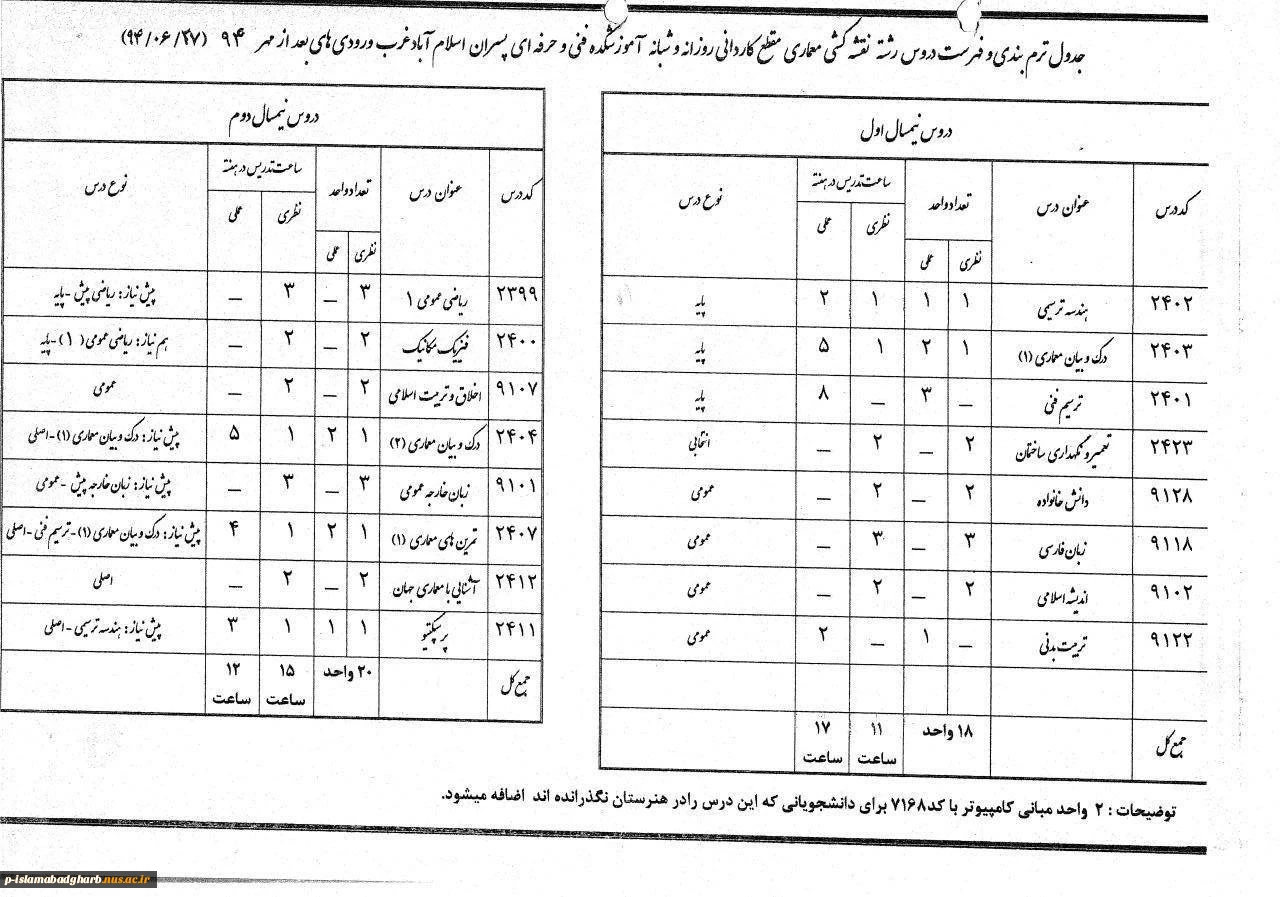 جدول ترم بندی و فهرست دروس رشته نقشه کشی معماری مقطع کاردانی روزانه و شبانه آموزشکده فنی و حرفه ای پسران اسلام آبادغرب ورودی های بعد از مهر ۹۴ (۹۴/۰۶/۲۷)
دروس نیمسال اول
کد درس عنوان درس تعداد واحد ساعت تدریس در هفته نوع درس
نظری عملی نظری عملی
۲۴۰۲ هندسه ترسیمی ۱ ۱ ۱ ۲ پایه
۲۴۰۳ درک و بیان معماری (۱) ۱ ۲ ۱ ۵ پایه
۲۴۰۱ ترسیم فنی _ ۳ _ ۸ پایه
۲۴۲۳ تعمیر و نگهداری ساختمان ۲ _ ۲ _ انتخابی
۹۱۲۸ دانش خانواده ۲ _ ۲ _ عمومی
۹۱۱۸ زبان فارسی ۳ _ ۳ _ عمومی
۹۱۰۲ اندیشه اسلامی ۲ _ ۲ _ عمومی
۹۱۲۲ تربیت بدنی _ ۱ _ ۲ عمومی
جمع کل ۱۸ واحد ۱۱ ساعت ۱۷ ساعت
دروس نیمسال دوم
کد درس عنوان درس تعداد واحد ساعت تدریس در هفته نوع درس
نظری عملی نظری عملی
۲۳۹۹ ریاضی عمومی ۱ ۳ _ ۳ _ پیش نیاز: ریاضی پیش -پایه
۲۴۰۰ فیزیک مکانیک ۲ _ ۲ _ هم نیاز: ریاضی عمومی (۱)-پایه
۹۱۰۷ اخلاق و تربیت اسلامی ۲ _ ۲ _ عمومی
۲۴۰۴ درک و بیان معماری (۲) ۱ ۲ ۱ ۵ پیش نیاز: درک و بیان معماری (۱)-اصلی
۹۱۰۱ زبان خارجه عمومی ۳ _ ۳ _ پیش نیاز: زبان خارجه پیش -عمومی
۲۴۰۷ تمرین های معماری (۱) ۱ ۲ ۱ ۴ پیش نیاز: درک و بیان معماری (۱)-ترسیم فنی -اصلی
۲۴۱۲ آشنایی با معماری جهان ۲ _ ۲ _ اصلی
۲۴۱۱ پرسپکتیو ۱ ۱ ۱ ۳ پیش نیاز: هندسه ترسیمی -اصلی
جمع کل ۲۰ واحد ۱۵ ساعت ۱۲ ساعت
توضیحات : ۲ واحد مبانی کامپیوتر با کد۷۱۶۸ برای دانشجویانی که این درس رادر هنرستان نگذرانده اند اضافه میشود.
p-islamabadgharb.nus.ac.ir